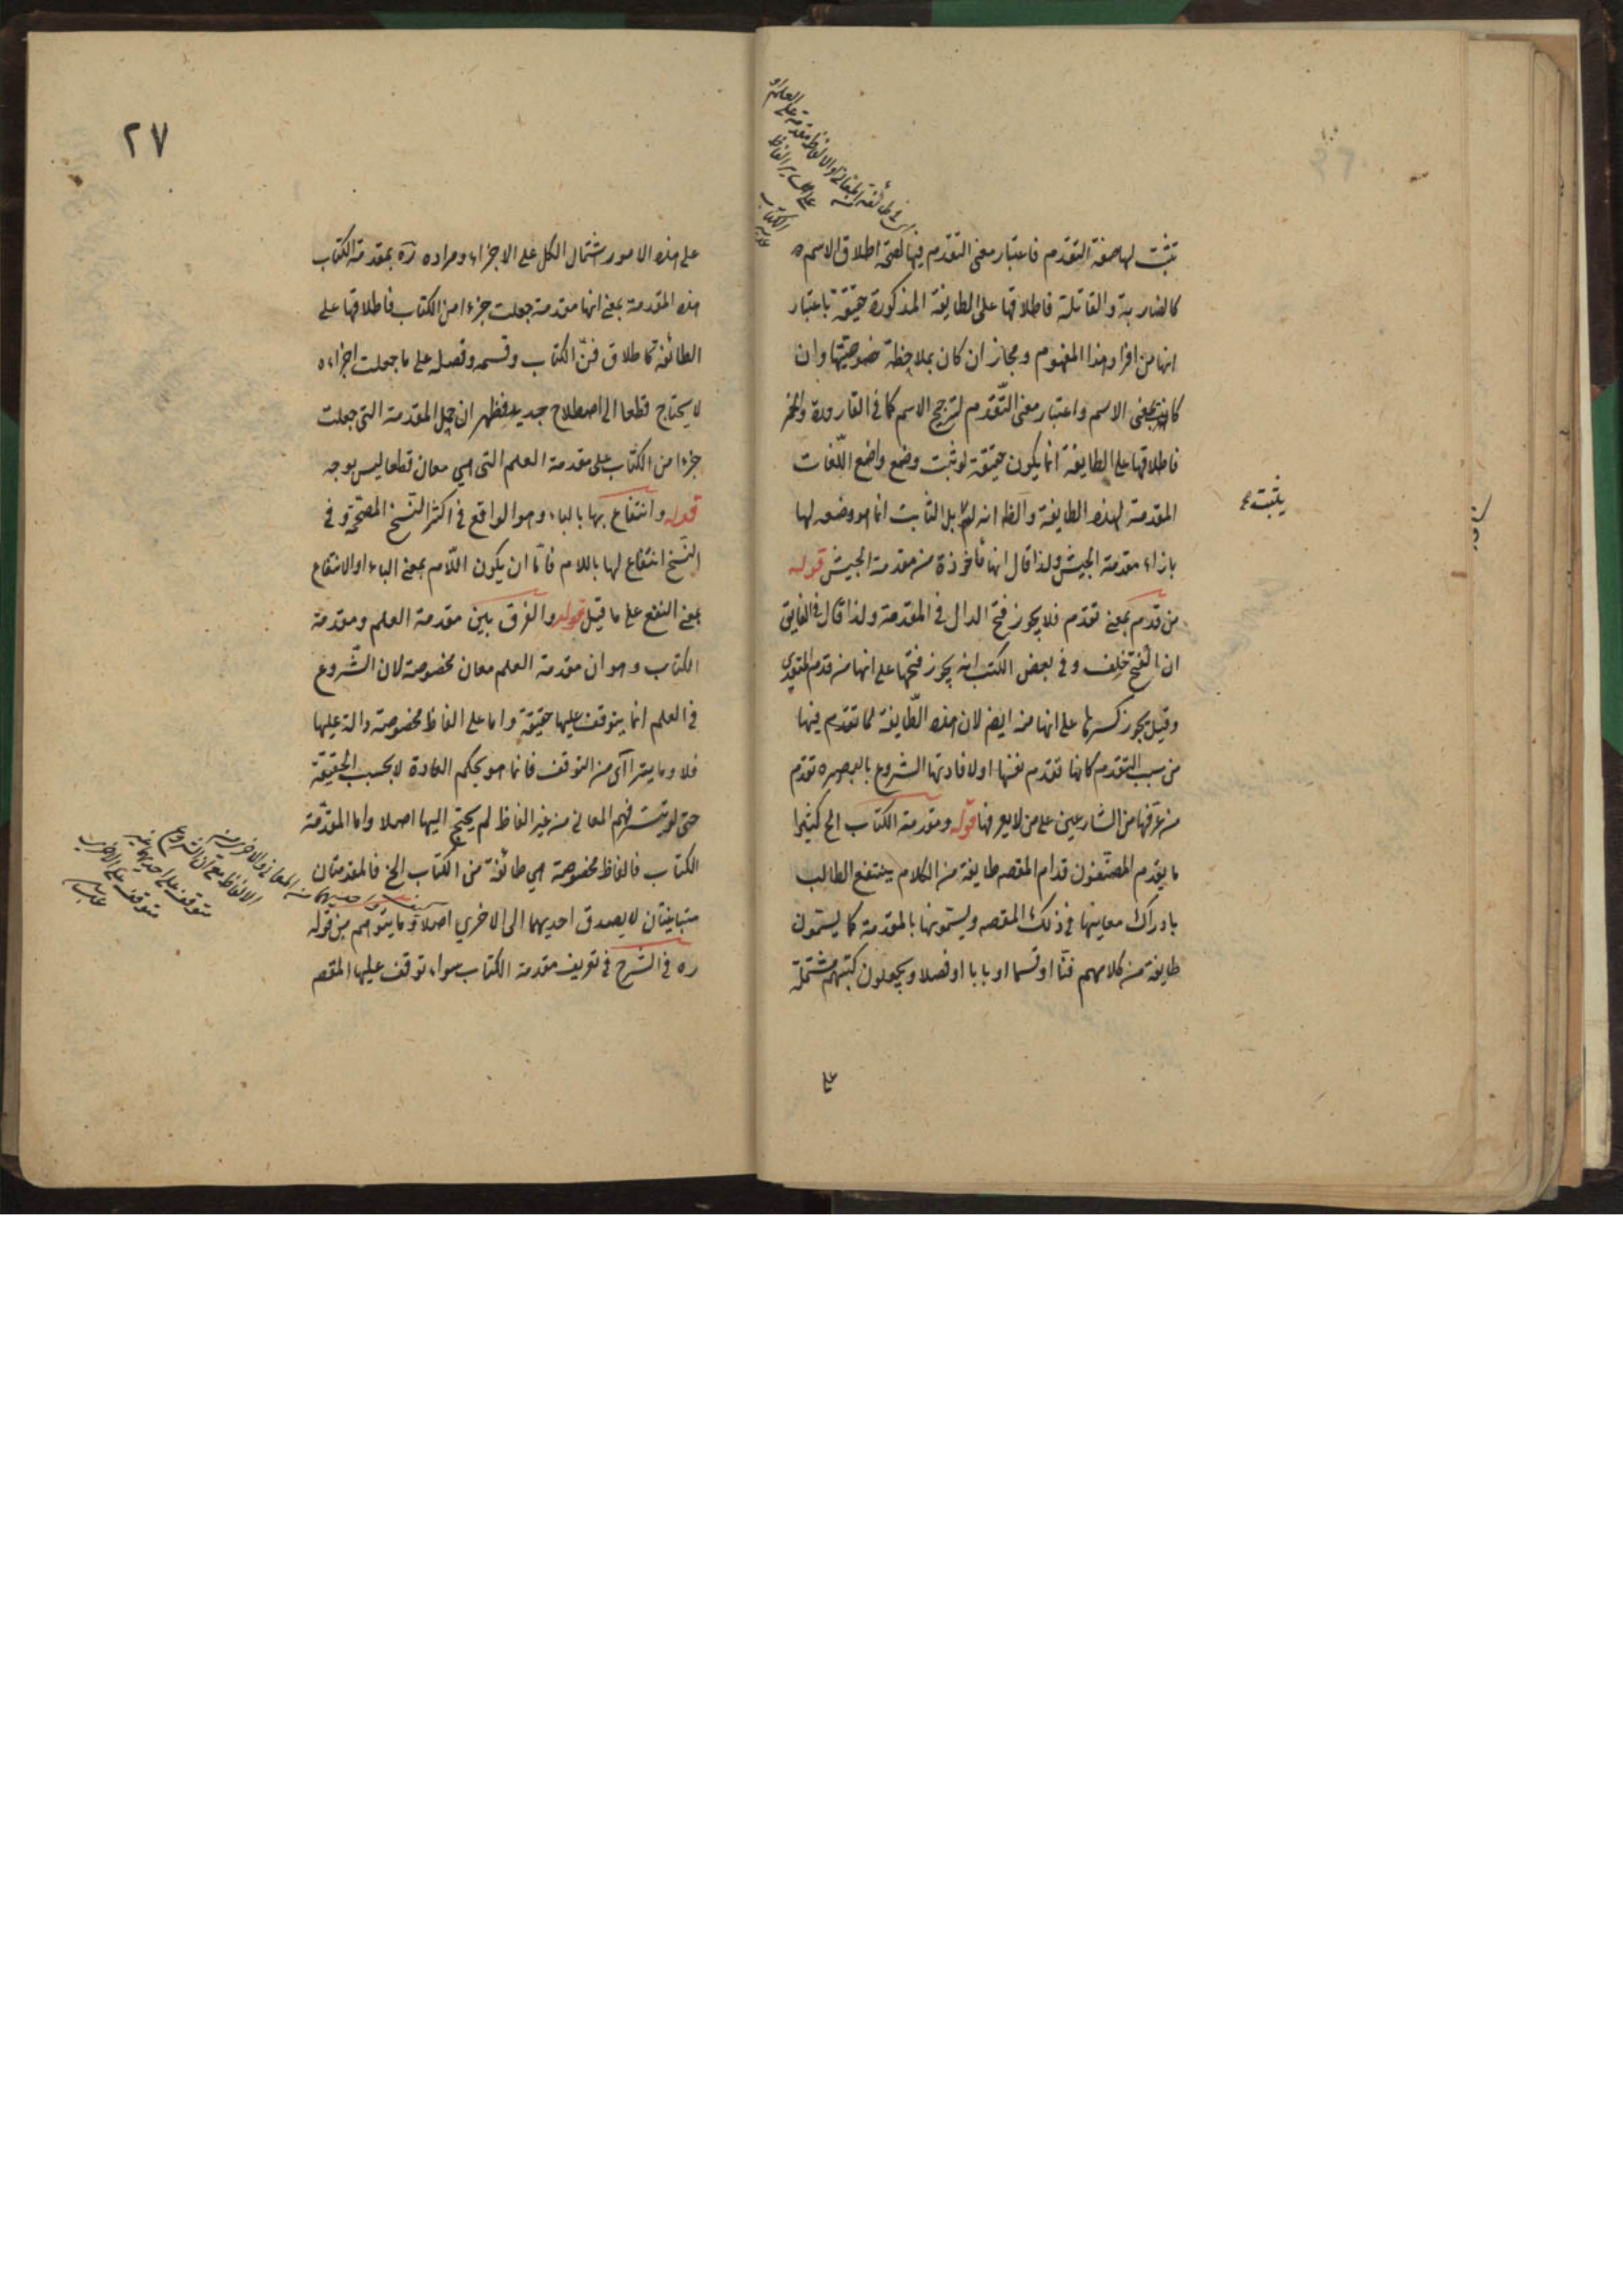 تثبت لها صفة التقدم فاعتبار معنى التقدم فيها لصحة اطلاق الاسم
كالضاربة والقاتلة فاطلاقها على الطايفة المذكورة حقيقة باعتبار
انها من افراد هذا المفهوم ومجاز ان كان بملاحظة خصوصيتها وان
كانت بمعنى الاسم واعتبار معنى التقدم لترجيح الاسم كما في القارورة والخمر
فاطلاقها على الطايفة انما يكون حقيقة لو ثبت وضع واضع اللغات
المقدمة لهذه الطايفة والظ انه لم بل الثابت انما هو وضعه لها
يثبت
بازاء مقدمة الجيش ولذا قال انها مأخوذة من مقدمة الجيش قوله
من قدم بمعنى تقدم فلا يجوز فتح الدال في المقدمة ولذا قال في الفايق
ان الفتح خلف وفي بعض الكتب انه يجوز فتحها على انها من قدم المتعدي
وقيل يجوز كسرها على انها منه ايضا لان هذه الطايفة لما تقدم فيها
من سبب التقدم كانها تقدم نفسها او لافادتها الشروع بالبصيرة تقدم
من عرفها من الشارعين على من لا يعرفها قوله ومقدمة الكتاب الخ كثيرا
ما يقدم المصنفون قدام المقصد طايفة من الكلام ينتفع الطالب
بادراك معانيها في ذلك المقصد ويسمونها بالمقدمة كما يسمون
طايفة من كلامهم فنا او قسما او بابا او فصلا ويجعلون كتبهم مشتملة
على
٢٧
على هذه الامور اشتمال الكل على الاجزاء ومراده ره بمقدمة الكتاب
هذه المقدمة بمعنى انها مقدمة جعلت جزءا من الكتاب فاطلاقها على
الطائفة كاطلاق فن الكتاب وقسمه وفصله على ما جعلت اجزاءه
لا يحتاج قطعا الى اصطلاح جديد فظهر ان حمل المقدمة التي جعلت
جزءا من الكتاب على مقدمة العلم التي هي معان قطعا ليس بوجه
قوله وانتفاع بها بالباء وهو الواقع في اكثر النسخ المصححة وفي
النسخ انتفاع لها باللام فاما ان يكون اللام بمعنى الباء او الانتفاع
بمعنى النفع على ما قيل قوله والفرق بين مقدمة العلم ومقدمة
الكتاب وهو ان مقدمة العلم معان مخصوصة لان الشروع
في العلم انما يتوقف عليها حقيقة واما على الفاظ مخصوصة دالة عليها
فلا وما يتراآى من التوقف فانما هو بحكم العادة لا بحسب الحقيقة
حتى لو تيسر فهم المعاني من غير الفاظ لم يحتج اليها اصلا واما المقدمة
الكتاب فالفاظ مخصوصة هي طائفة من الكتاب الخ فالمقدمتان
متباينتان لا يصدق احديهما الى الاخرى اصلا وما يتوهم من قوله
ره في الشرح في تعريف مقدمة الكتاب سواء توقف عليها المقصد